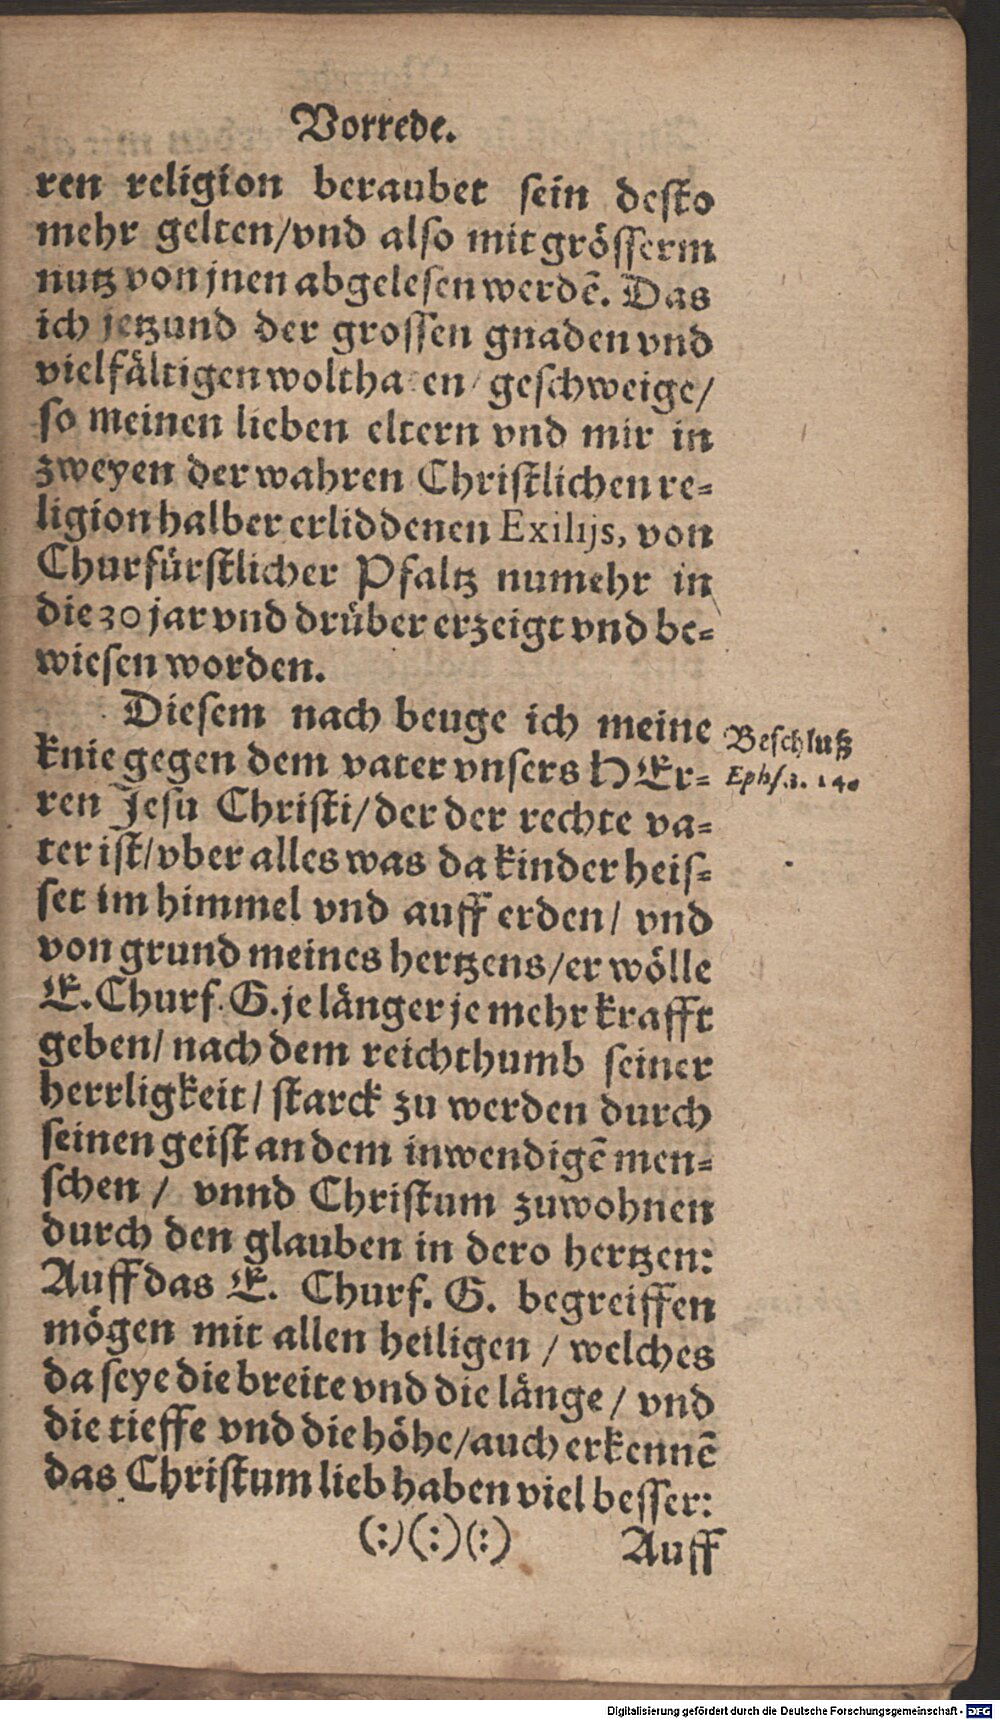 Vorrede.
ren religion beraubet sein desto
mehr gelten/vnd also mit grösserm
nutz von jnen abgelesen werdē. Das
ich jetzund der grossen gnaden vnd
vielfältigen woltha en/geschweige/
so meinen lieben eltern vnd mir in
zweyen der wahren Christlichen re-
ligion halber erliddenen Exilijs, von
Churfürstlicher Pfaltz numehr in
die 30 jar vnd drüber erzeigt vnd be-
wiesen worden.
Diesem nach beuge ich meine
knie gegen dem vater vnsers HEr-
Beschluß
Ephs.3. 14.
ren Jesu Christi/der der rechte va-
ter ist/vber alles was da kinder heis-
set im himmel vnd auff erden/ vnd
von grund meines hertzens/er wölle
E. Churf. G. je länger je mehr krafft
geben/ nach dem reichthumb seiner
herrligkeit/ starck zu werden durch
seinen geist an dem inwendigē men-
schen / vnnd Christum zuwohnen
durch den glauben in dero hertzen:
Auff das E. Churf. G. begreiffen
mögen mit allen heiligen / welches
da seye die breite vnd die länge / vnd
die tieffe vnd die höhe/auch erkennē
das Christum lieb haben viel besser:
(:)(:)(:) Auff
Digitalisierung gefördert durch die Deutsche Forschungsgemeinschaft - DFG